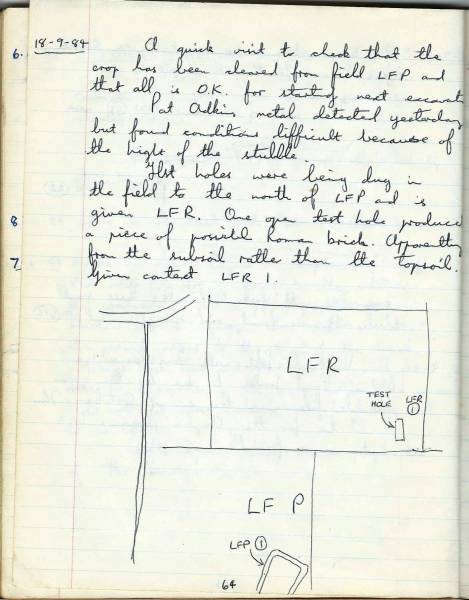 6. 18-9-84 A quick visit to check that the
crop has been cleared from field LFP and
that all is O.K. for starting next excavat
Pat Adkins metal detected yesterday
but found conditions difficult because of
the hight of the stubble.
Test holes were being dug in
the field to the north of LFP and is
8 given LFR. One open test hole produce
a piece of possible Roman brick. Apparently
7 from the subsoil rather than the topsoil.
Given context LFR 1.
LFR
TEST
HOLE
LFR
1
LF P
LFP 1
64